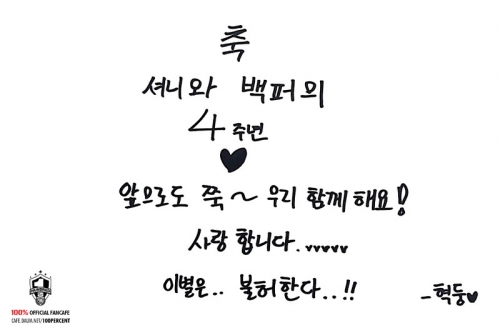 축
셔니와 백퍼의
4 주년
♥
앞으로도 쭉~ 우리 함께해요!
사랑합니다.♥♥♥♥♥
이별은.. 불허한다..!!
-혁둥♥
100% OFFICIAL FANCAFE
CAFE.DAUM.NET/100PERCENT